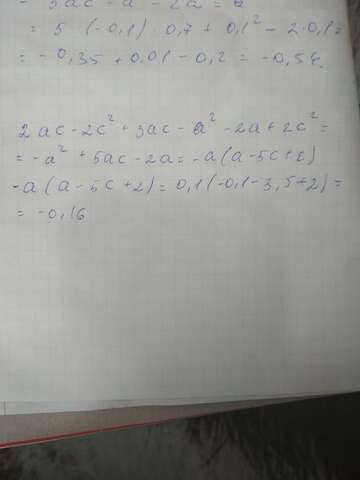 - 5ac - a - 2a =
= 5 (-0,1) · 0,7 + 0,1² - 2·0,1
= - 0,35 + 0.01 - 0,2 = -0,54.
2ac - 2c² + 3ac - a² - 2a + 2c² =
= -a² + 5ac - 2a = -a(a-5c+2)
-a(a-5c+2) = 0,1(-0,1-3,5+2) =
= -0,16